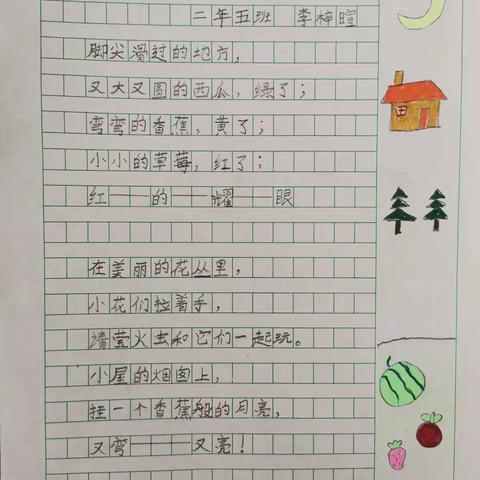 二年五班 李梓暄
脚尖滑过的地方，
又大又圆的西瓜，绿了；
弯弯的香蕉，黄了；
小小的草莓，红了；
红——的——耀——眼
在美丽的花丛里，
小花们拉着手，
请萤火虫和它们一起玩。
小屋的烟囱上，
挂一个香蕉般的月亮，
又弯——又亮！